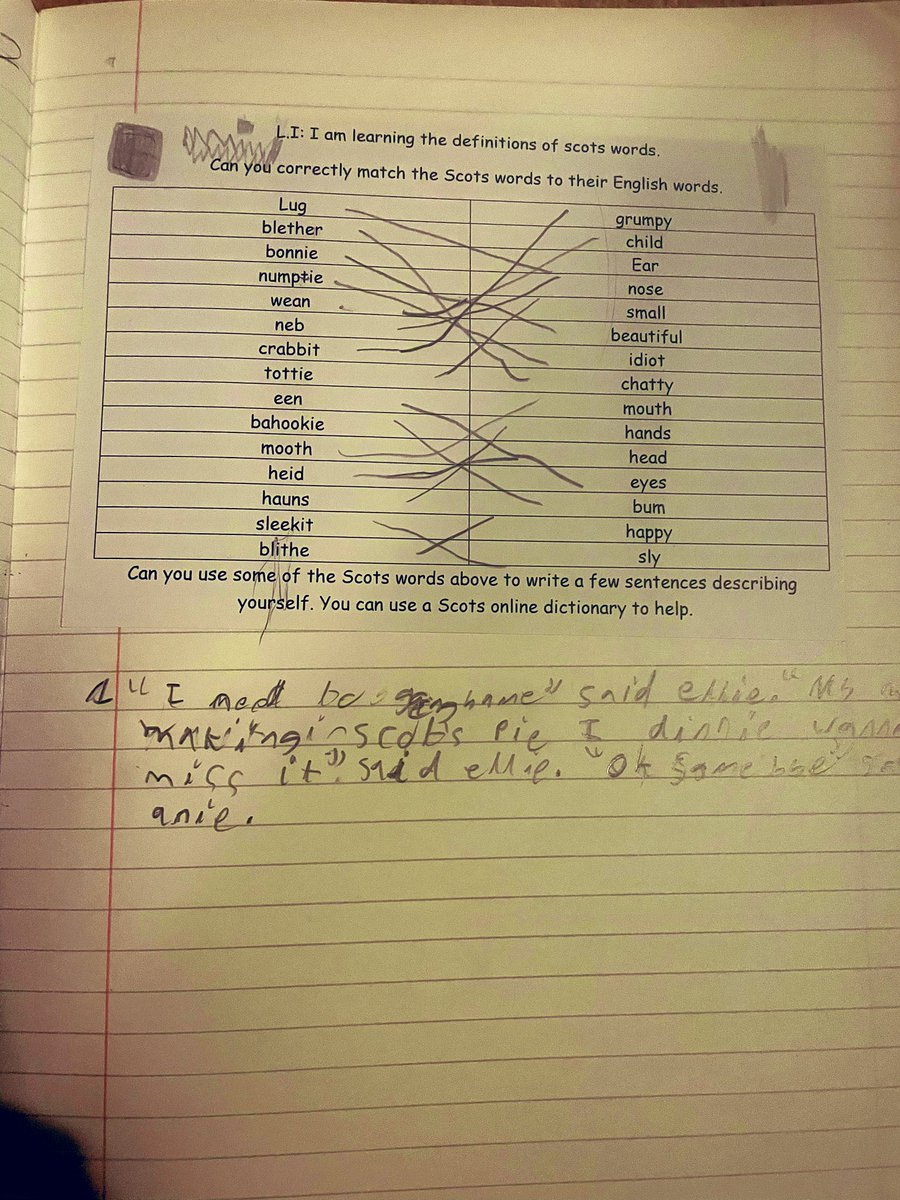 L.I: I am learning the definitions of scots words.
Can you correctly match the Scots words to their English words.
Lug grumpy
blether child
bonnie Ear
numptie nose
wean small
neb beautiful
crabbit idiot
tottie chatty
een mouth
bahookie hands
mooth head
heid eyes
hauns bum
sleekit happy
blithe sly
Can you use some of the Scots words above to write a few sentences describing
yourself. You can use a Scots online dictionary to help.
"I said ellie. "My
scots pie I dinnie
miss it" said ellie. "Ok
anie.